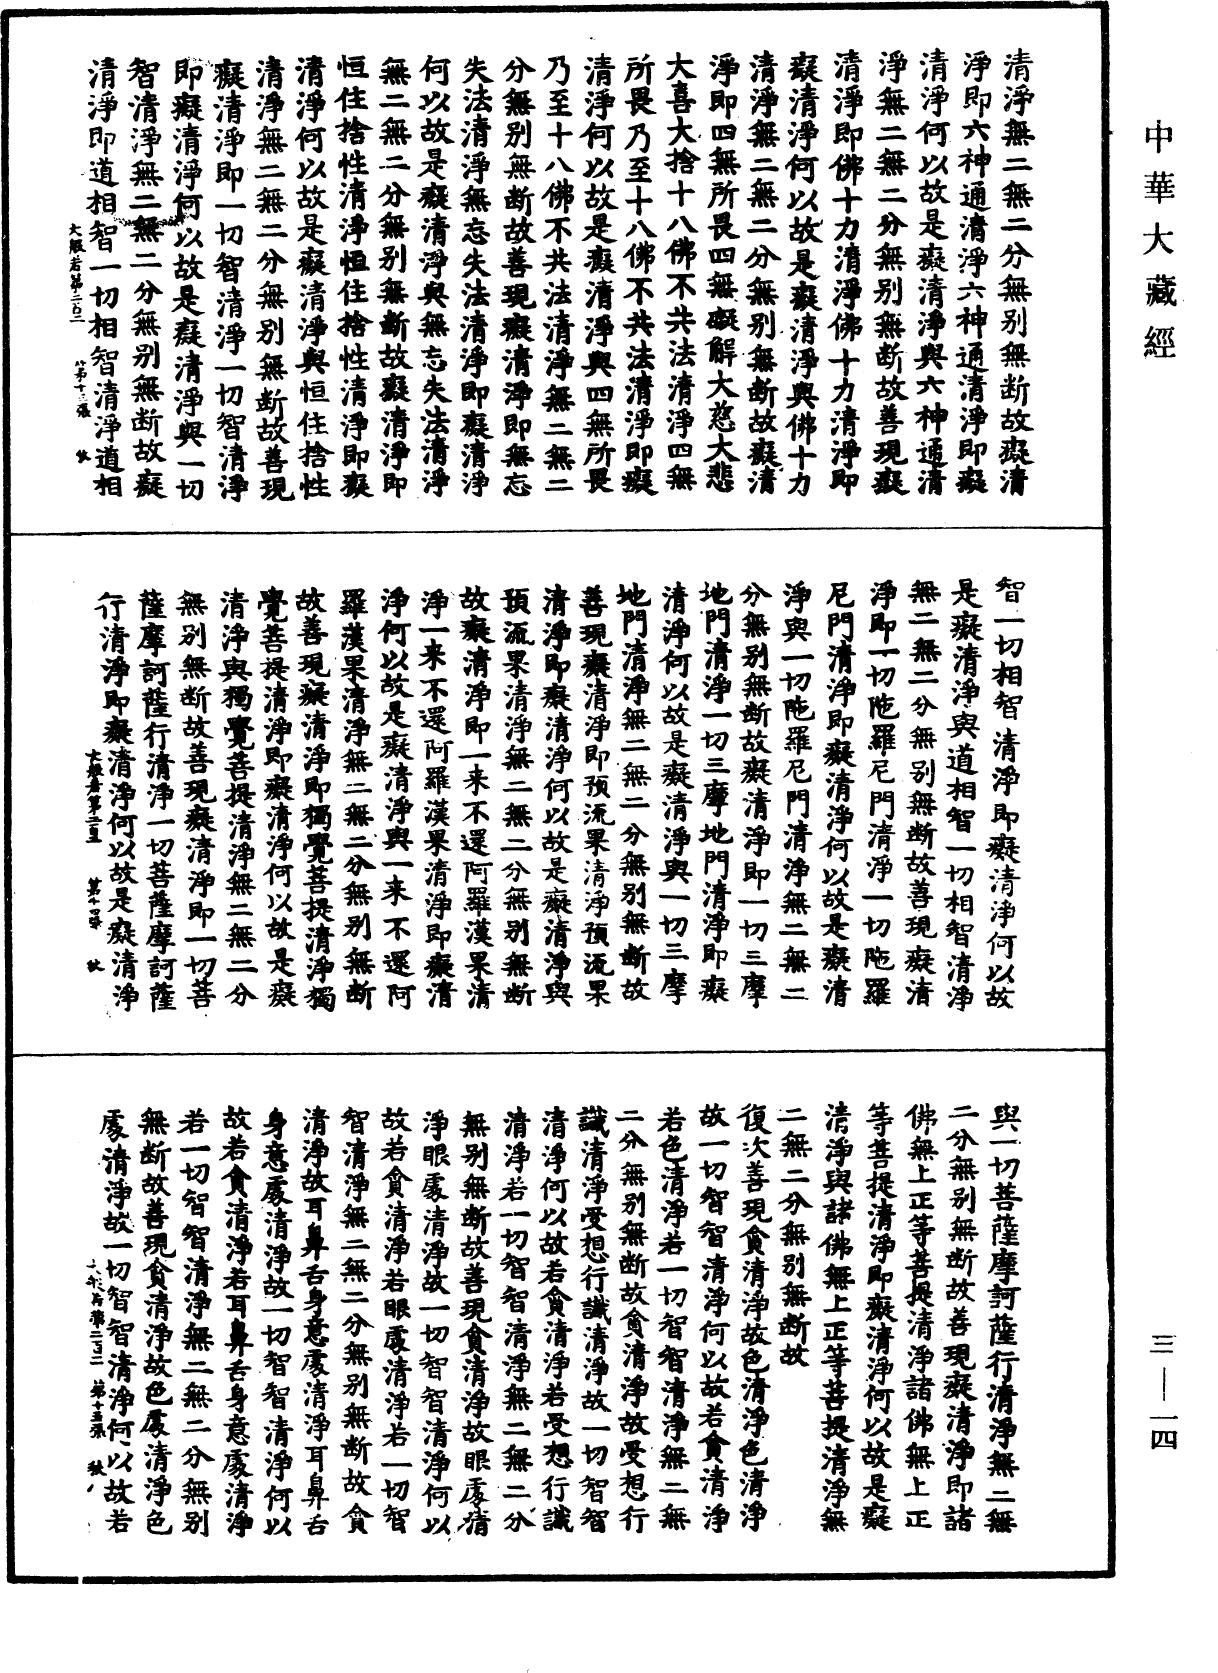 中華大藏經
清淨無二無二分無別無断故癡清
淨即六神通清淨六神通清淨即癡
清淨何以故是癡清淨與六神通清
淨無二無二分無別無断故善現癡
清淨即佛十力清淨佛十力清淨即
癡清淨何以故是癡清淨與佛十力
清淨無二無二分無別無断故癡清
淨即四無所畏四無礙解大慈大悲
大喜大捨十八佛不共法清淨四無
所畏乃至十八佛不共法清淨即癡
清淨何以故是癡清淨與四無所畏
乃至十八佛不共法清淨無二無二
分無別無断故善現癡清淨即無忘
失法清淨無忘失法清淨即癡清淨
何以故是癡清淨與無忘失法清淨
無二無二分無別無断故癡清淨即
恒住捨性清淨恒住捨性清淨即癡
清淨何以故是癡清淨與恒住捨性
清淨無二無二分無別無断故善現
癡清淨即一切智清淨一切智清淨
即癡清淨何以故是癡清淨與一切
智清淨無二無二分無別無断故癡
清淨即道相智一切相智清淨道相
大般若第二百二 第十三張 秋
智一切相智清淨即癡清淨何以故
是癡清淨與道相智一切相智清淨
無二無二分無別無断故善現癡清
淨即一切陁羅尼門清淨一切陁羅
尼門清淨即癡清淨何以故是癡清
淨與一切陁羅尼門清淨無二無二
分無別無断故癡清淨即一切三摩
地門清淨一切三摩地門清淨即癡
清淨何以故是癡清淨與一切三摩
地門清淨無二無二分無別無断故
善現癡清淨即預流果清淨預流果
清淨即癡清淨何以故是癡清淨與
預流果清淨無二無二分無別無断
故癡清淨即一来不還阿羅漢果清
淨一来不還阿羅漢果清淨即癡清
淨何以故是癡清淨與一来不還阿
羅漢果清淨無二無二分無別無断
故善現癡清淨即獨覺菩提清淨獨
覺菩提清淨即癡清淨何以故是癡
清淨與獨覺菩提清淨無二無二分
無別無断故善現癡清淨即一切菩
薩摩訶薩行清淨一切菩薩摩訶薩
行清淨即癡清淨何以故是癡清淨
大般若第二百二 第十四張 秋
與一切菩薩摩訶薩行清淨無二無
二分無別無断故善現癡清淨即諸
佛無上正等菩提清淨諸佛無上正
等菩提清淨即癡清淨何以故是癡
清淨與諸佛無上正等菩提清淨無
二無二分無別無断故
復次善現貪清淨故色清淨色清淨
故一切智智清淨何以故若貪清淨
若色清淨若一切智智清淨無二無
二分無別無断故貪清淨故受想行
識清淨受想行識清淨故一切智智
清淨何以故若貪清淨若受想行識
清淨若一切智智清淨無二無二分
無別無断故善現貪清淨故眼處清
淨眼處清淨故一切智智清淨何以
故若貪清淨若眼處清淨若一切智
智清淨無二無二分無別無断故貪
清淨故耳鼻舌身意處清淨耳鼻舌
身意處清淨故一切智智清淨何以
故若貪清淨若耳鼻舌身意處清淨
若一切智智清淨無二無二分無別
無断故善現貪清淨故色處清淨色
處清淨故一切智智清淨何以故若
大般若第二百二 第十五張 秋
三—一四